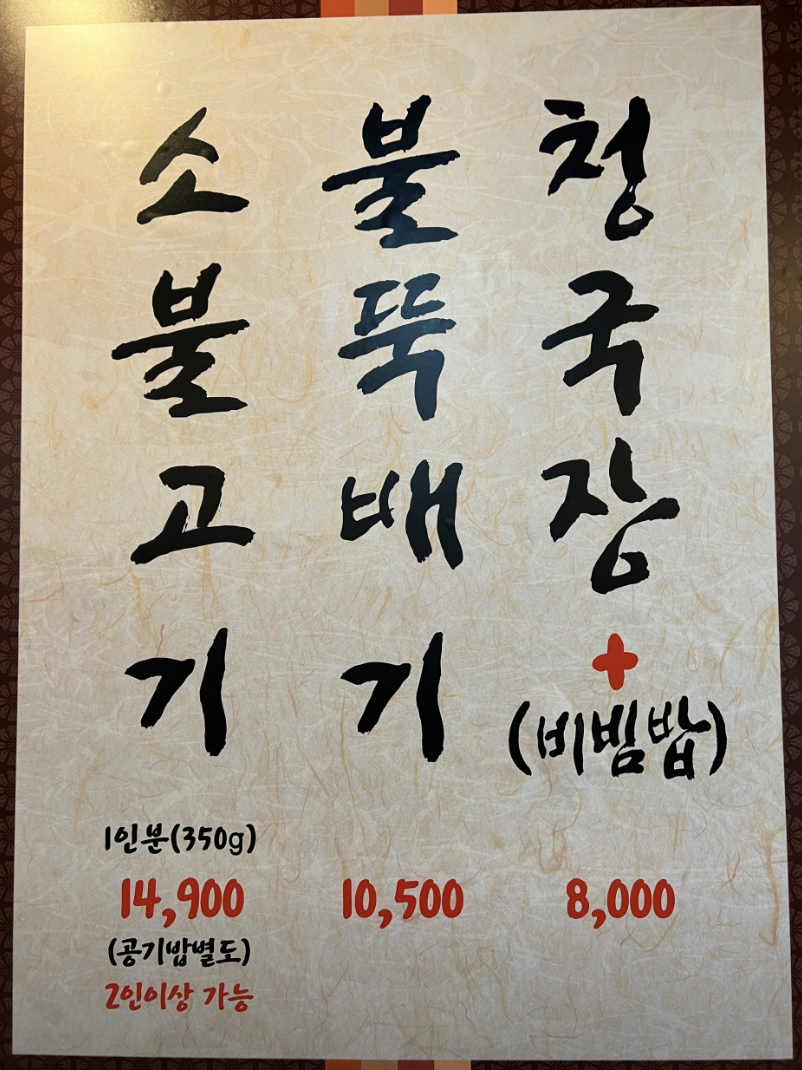 소불고기
1인분(350g)
14,900
(공기밥별도)
2인이상 가능
불뚝배기
10,500
청국장
+
(비빔밥)
8,000